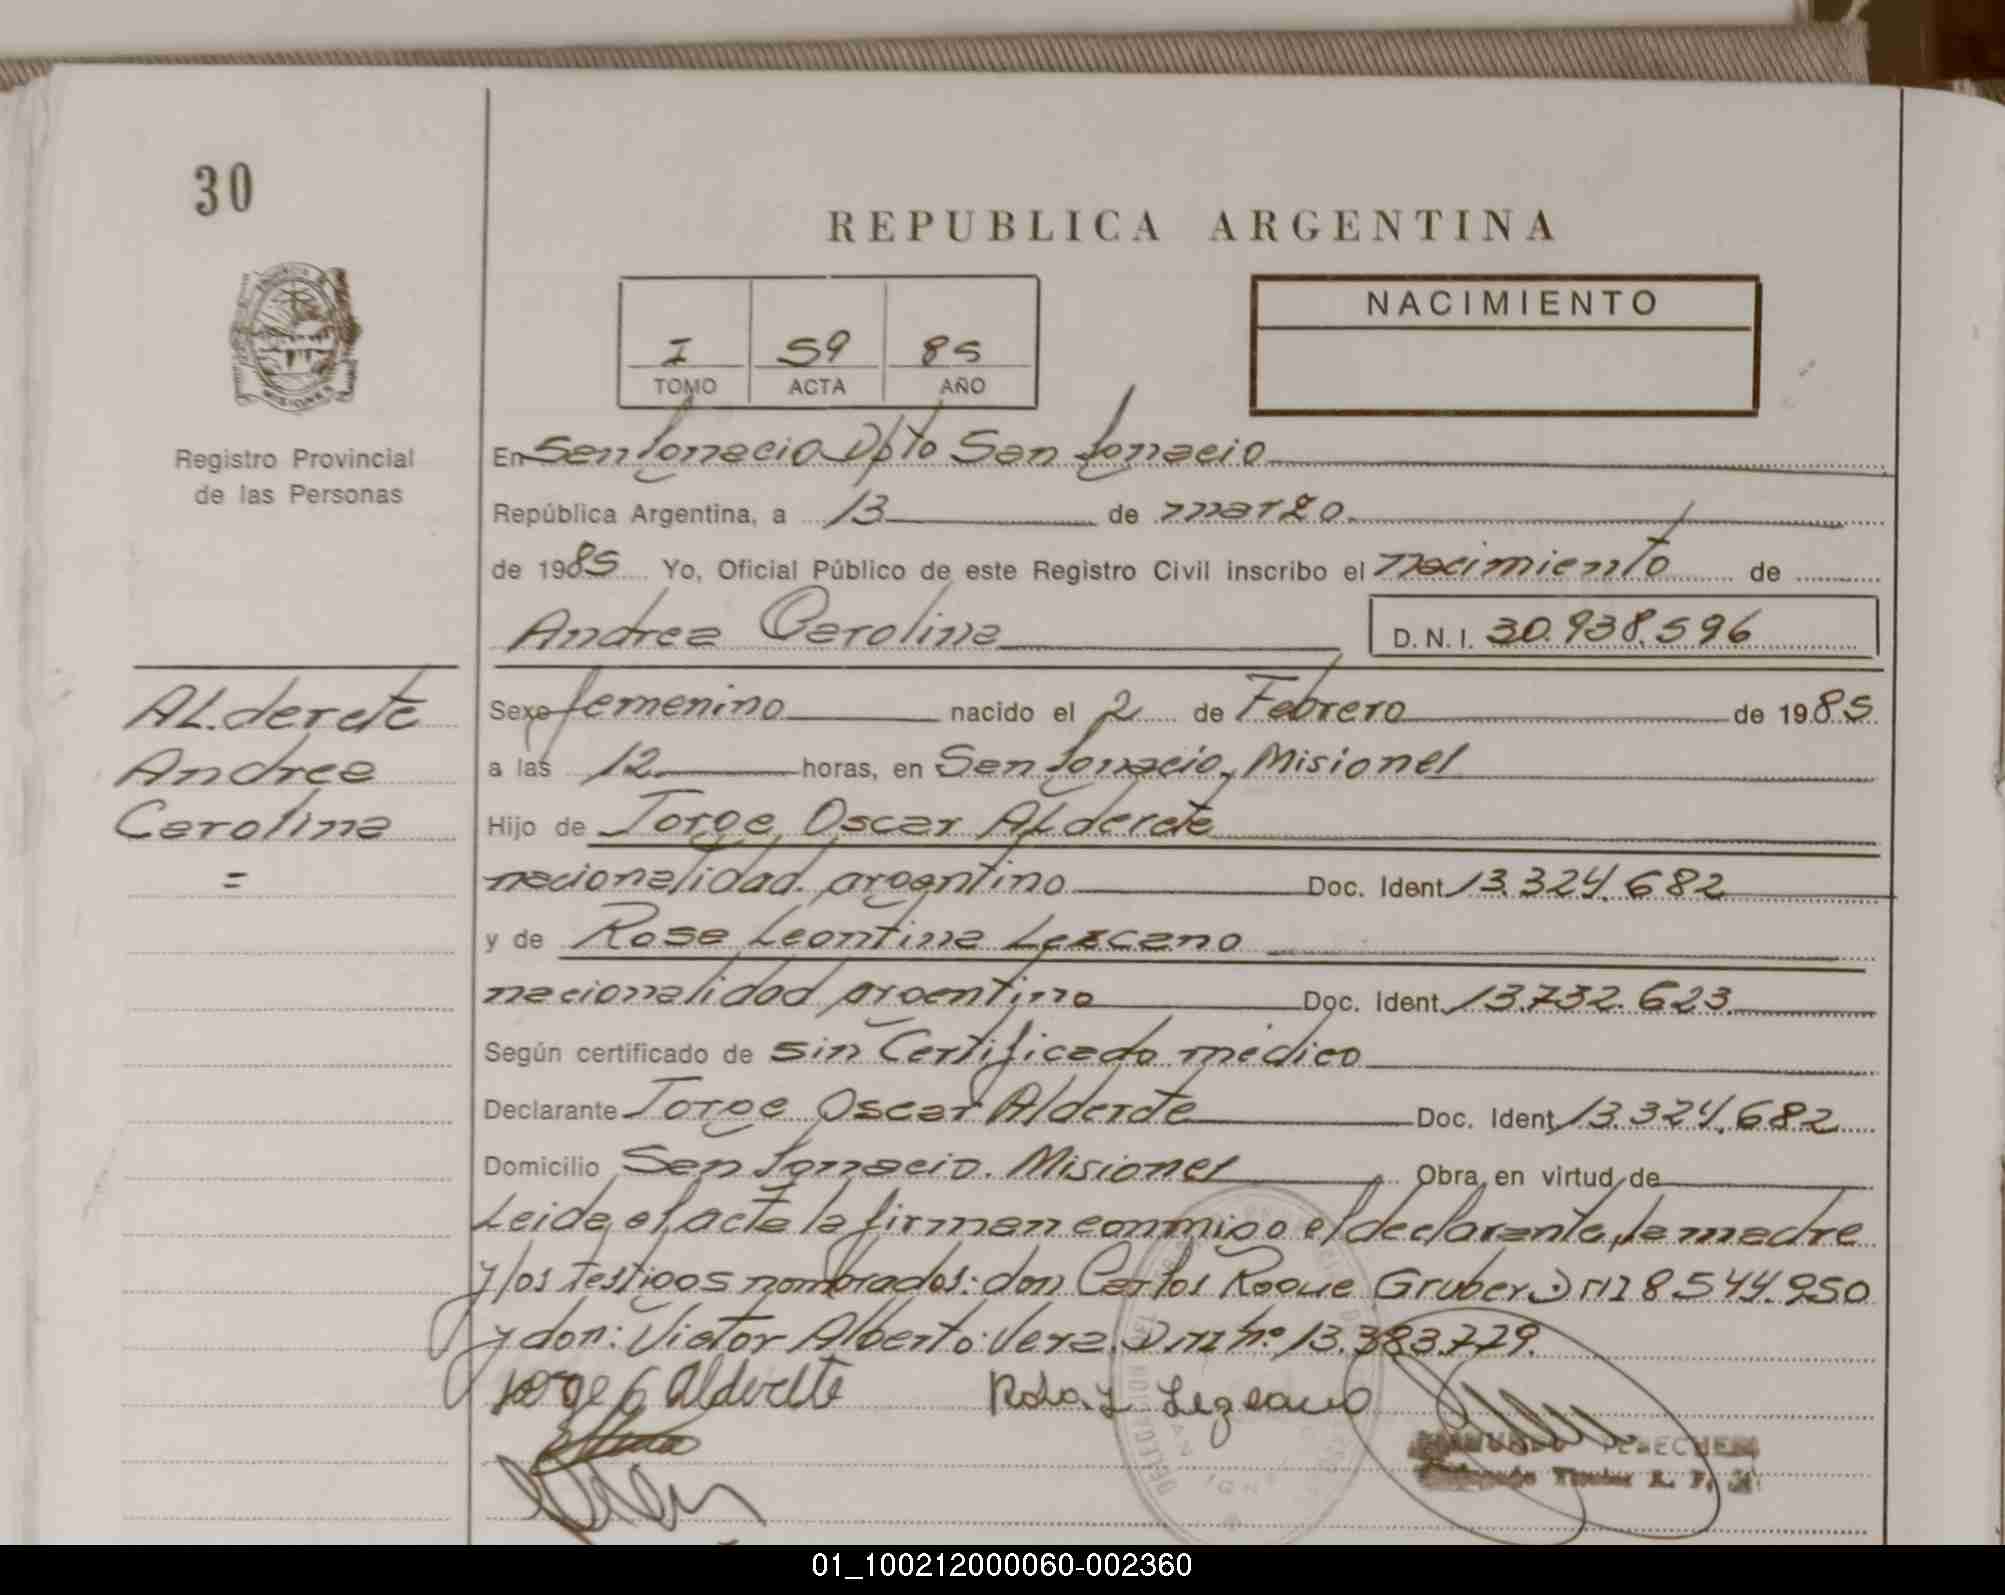 30
REPUBLICA ARGENTINA
MISIONES
Registro Provincial
de las Personas
I 59 85
TOMO ACTA AÑO
NACIMIENTO
En San Ignacio Dpto San Ignacio
República Argentina, a 13 de marzo
de 1985 Yo, Oficial Público de este Registro Civil inscribo el nacimiento de
Andrea Carolina D.N.I. 30.938.596
ALderete
Andrea
Carolina
=
Sexo femenino nacido el 2 de Febrero de 1985
a las 12 horas, en San Ignacio, Misiones
Hijo de Jorge Oscar ALderete
nacionalidad argentino Doc. Ident. 13.324.682
y de Rosa Leontina Lezcano
nacionalidad argentina Doc. Ident. 13.732.623
Según certificado de sin Certificado médico
Declarante Jorge Oscar Alderete Doc. Ident. 13.324.682
Domicilio San Ignacio. Misiones Obra en virtud de
Leida el acta la firman conmigo el declarante, la madre
y los testigos nombrados: don Carlos Roque Gruber DNI 8.544.950
y don: Victor Alberto Vera. DNI nº 13.383.779.
Jorge O Alderete Rosa L Lezcano
01_100212000060-002360